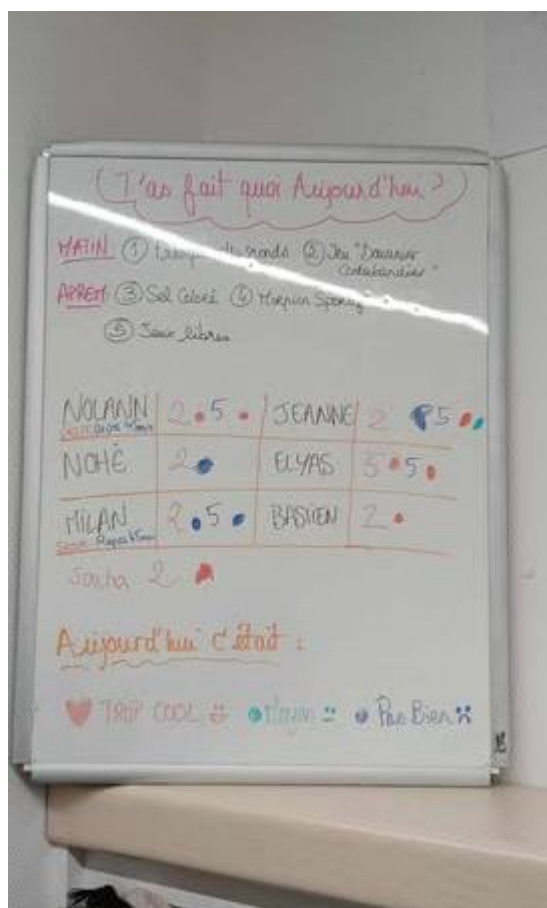 T'as fait quoi Aujourd'hui ?
MATIN ① ② Jeu "Douanier
Contrebandier"
APREM ③ Sel Coloré ④ Morpion Sportif
⑤ Jeux libres
NOLANN 2 5 JEANNE 2 5
NOHÉ 2 ELYAS 5 5
MILAN 2 5 BASTIEN 2
Sacha 2
Aujourd'hui c'était :
TROP COOL Moyen Pas Bien